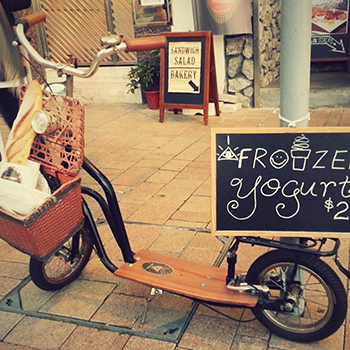 SANDWICH
SALAD
BAKERY
FROZEN
Yogurt
$2